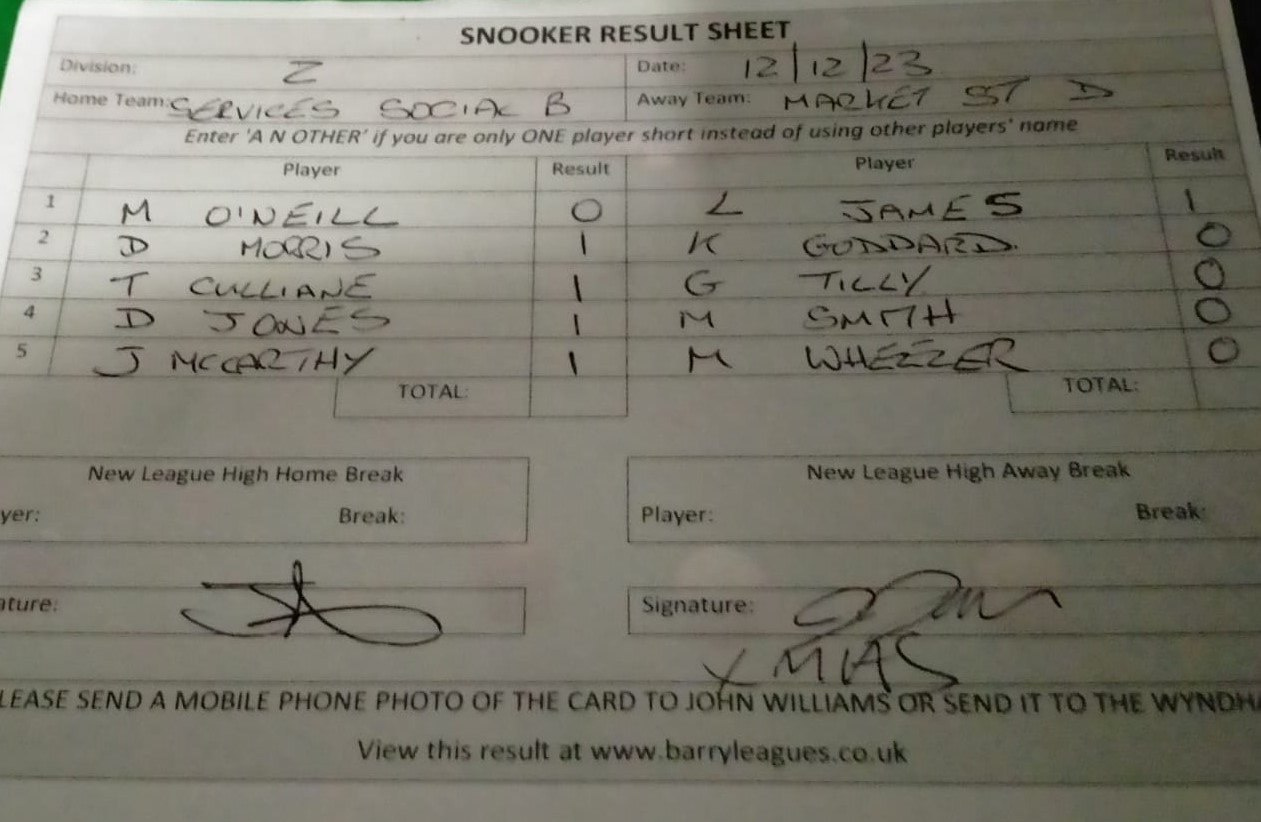 SNOOKER RESULT SHEET
Division: 2 Date: 12/12/23
Home Team: SERVICES SOCIAL B Away Team: MARKET ST D
Enter 'A N OTHER' if you are only ONE player short instead of using other players' name
Player Result Player Result
1 M O'NEILL 0 L JAMES 1
2 D MORRIS 1 K GODDARD. 0
3 T CULLIANE 1 G TILLY 0
4 D JONES 1 M SMITH 0
5 J MCCARTHY 1 M WHEEZER 0
TOTAL: TOTAL:
New League High Home Break New League High Away Break
yer: Break: Player: Break:
ature: Signature:
XMAS
LEASE SEND A MOBILE PHONE PHOTO OF THE CARD TO JOHN WILLIAMS OR SEND IT TO THE WYNDHA
View this result at www.barryleagues.co.uk